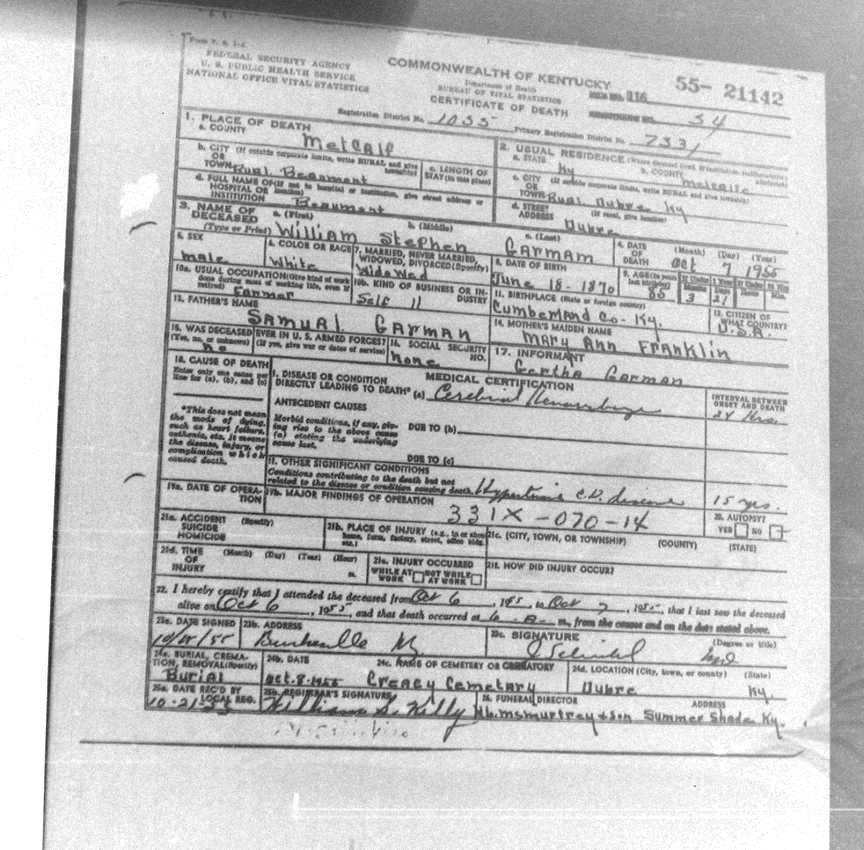 Form V. S. 1-A
FEDERAL SECURITY AGENCY
U. S. PUBLIC HEALTH SERVICE
NATIONAL OFFICE VITAL STATISTICS
COMMONWEALTH OF KENTUCKY
Department of Health
BUREAU OF VITAL STATISTICS
CERTIFICATE OF DEATH
116 55- 21142
Registration District No. 1055 Primary Registration District No. 7331 34
1. PLACE OF DEATH
a. COUNTY Metcalf
b. CITY (If outside corporate limits, write RURAL and give township) OR TOWN Rural Beaumont
c. LENGTH OF STAY (in this place)
d. FULL NAME OF (If not in hospital or institution, give street address or location) HOSPITAL OR INSTITUTION Beaumont
2. USUAL RESIDENCE (Where deceased lived. If institution: residence before admission)
a. STATE Ky b. COUNTY Metcalfe
c. CITY (If outside corporate limits, write RURAL and give township) OR TOWN Rural Dubre Ky
d. STREET ADDRESS (If rural, give location) Dubre
3. NAME OF DECEASED (Type or Print) a. (First) William b. (Middle) Stephen c. (Last) Garmam
4. DATE OF DEATH (Month) (Day) (Year) Oct 7 1955
5. SEX male
6. COLOR OR RACE White
7. MARRIED, NEVER MARRIED, WIDOWED, DIVORCED (Specify) Widowed
8. DATE OF BIRTH June 18-1870
9. AGE (In years last birthday) 85 3 21
10a. USUAL OCCUPATION (Give kind of work done during most of working life, even if retired) Farmer
10b. KIND OF BUSINESS OR INDUSTRY Self 11
11. BIRTHPLACE (State or foreign country) Cumberland Co- Ky.
12. CITIZEN OF WHAT COUNTRY? U.S.A.
13. FATHER'S NAME Samual Garman
14. MOTHER'S MAIDEN NAME Mary Ann Franklin
15. WAS DECEASED EVER IN U. S. ARMED FORCES? (Yes, no, or unknown) (If yes, give war or dates of service) no
16. SOCIAL SECURITY NO. none
17. INFORMANT Gertha Garman
18. CAUSE OF DEATH
Enter only one cause per line for (a), (b), and (c)
MEDICAL CERTIFICATION
INTERVAL BETWEEN ONSET AND DEATH
I. DISEASE OR CONDITION DIRECTLY LEADING TO DEATH* (a) Cerebral Hemorrhage 24 Hrs.
*This does not mean the mode of dying, such as heart failure, asthenia, etc. It means the disease, injury, or complication which caused death.
ANTECEDENT CAUSES
Morbid conditions, if any, giving rise to the above cause (a) stating the underlying cause last.
DUE TO (b)
DUE TO (c)
II. OTHER SIGNIFICANT CONDITIONS
Conditions contributing to the death but not related to the disease or condition causing death. Hypertensive C.V. disease 15 yrs.
19a. DATE OF OPERATION
19b. MAJOR FINDINGS OF OPERATION
331X-070-14
20. AUTOPSY? YES NO
21a. ACCIDENT SUICIDE HOMICIDE (Specify)
21b. PLACE OF INJURY (e.g., in or about home, farm, factory, street, office bldg. etc.)
21c. (CITY, TOWN, OR TOWNSHIP) (COUNTY) (STATE)
21d. TIME OF INJURY (Month) (Day) (Year) (Hour) m.
21e. INJURY OCCURRED WHILE AT WORK NOT WHILE AT WORK
21f. HOW DID INJURY OCCUR?
22. I hereby certify that I attended the deceased from Oct 6, 1955, to Oct 7, 1955, that I last saw the deceased
alive on Oct 6, 1955, and that death occurred at 6 A m., from the causes and on the date stated above.
23a. DATE SIGNED
23b. ADDRESS Burkesville Ky.
23c. SIGNATURE (Degree or title)
24a. BURIAL, CREMATION, REMOVAL (Specify) Burial
24b. DATE Oct. 8-1955
24c. NAME OF CEMETERY OR CREMATORY Creacy Cemetary
24d. LOCATION (City, town, or county) (State) Dubre Ky.
25a. DATE REC'D BY LOCAL REG. 10-21-55
25b. REGISTRAR'S SIGNATURE William S. Kelly
26. FUNERAL DIRECTOR ADDRESS
McMurtrey & Son Summer Shade Ky.